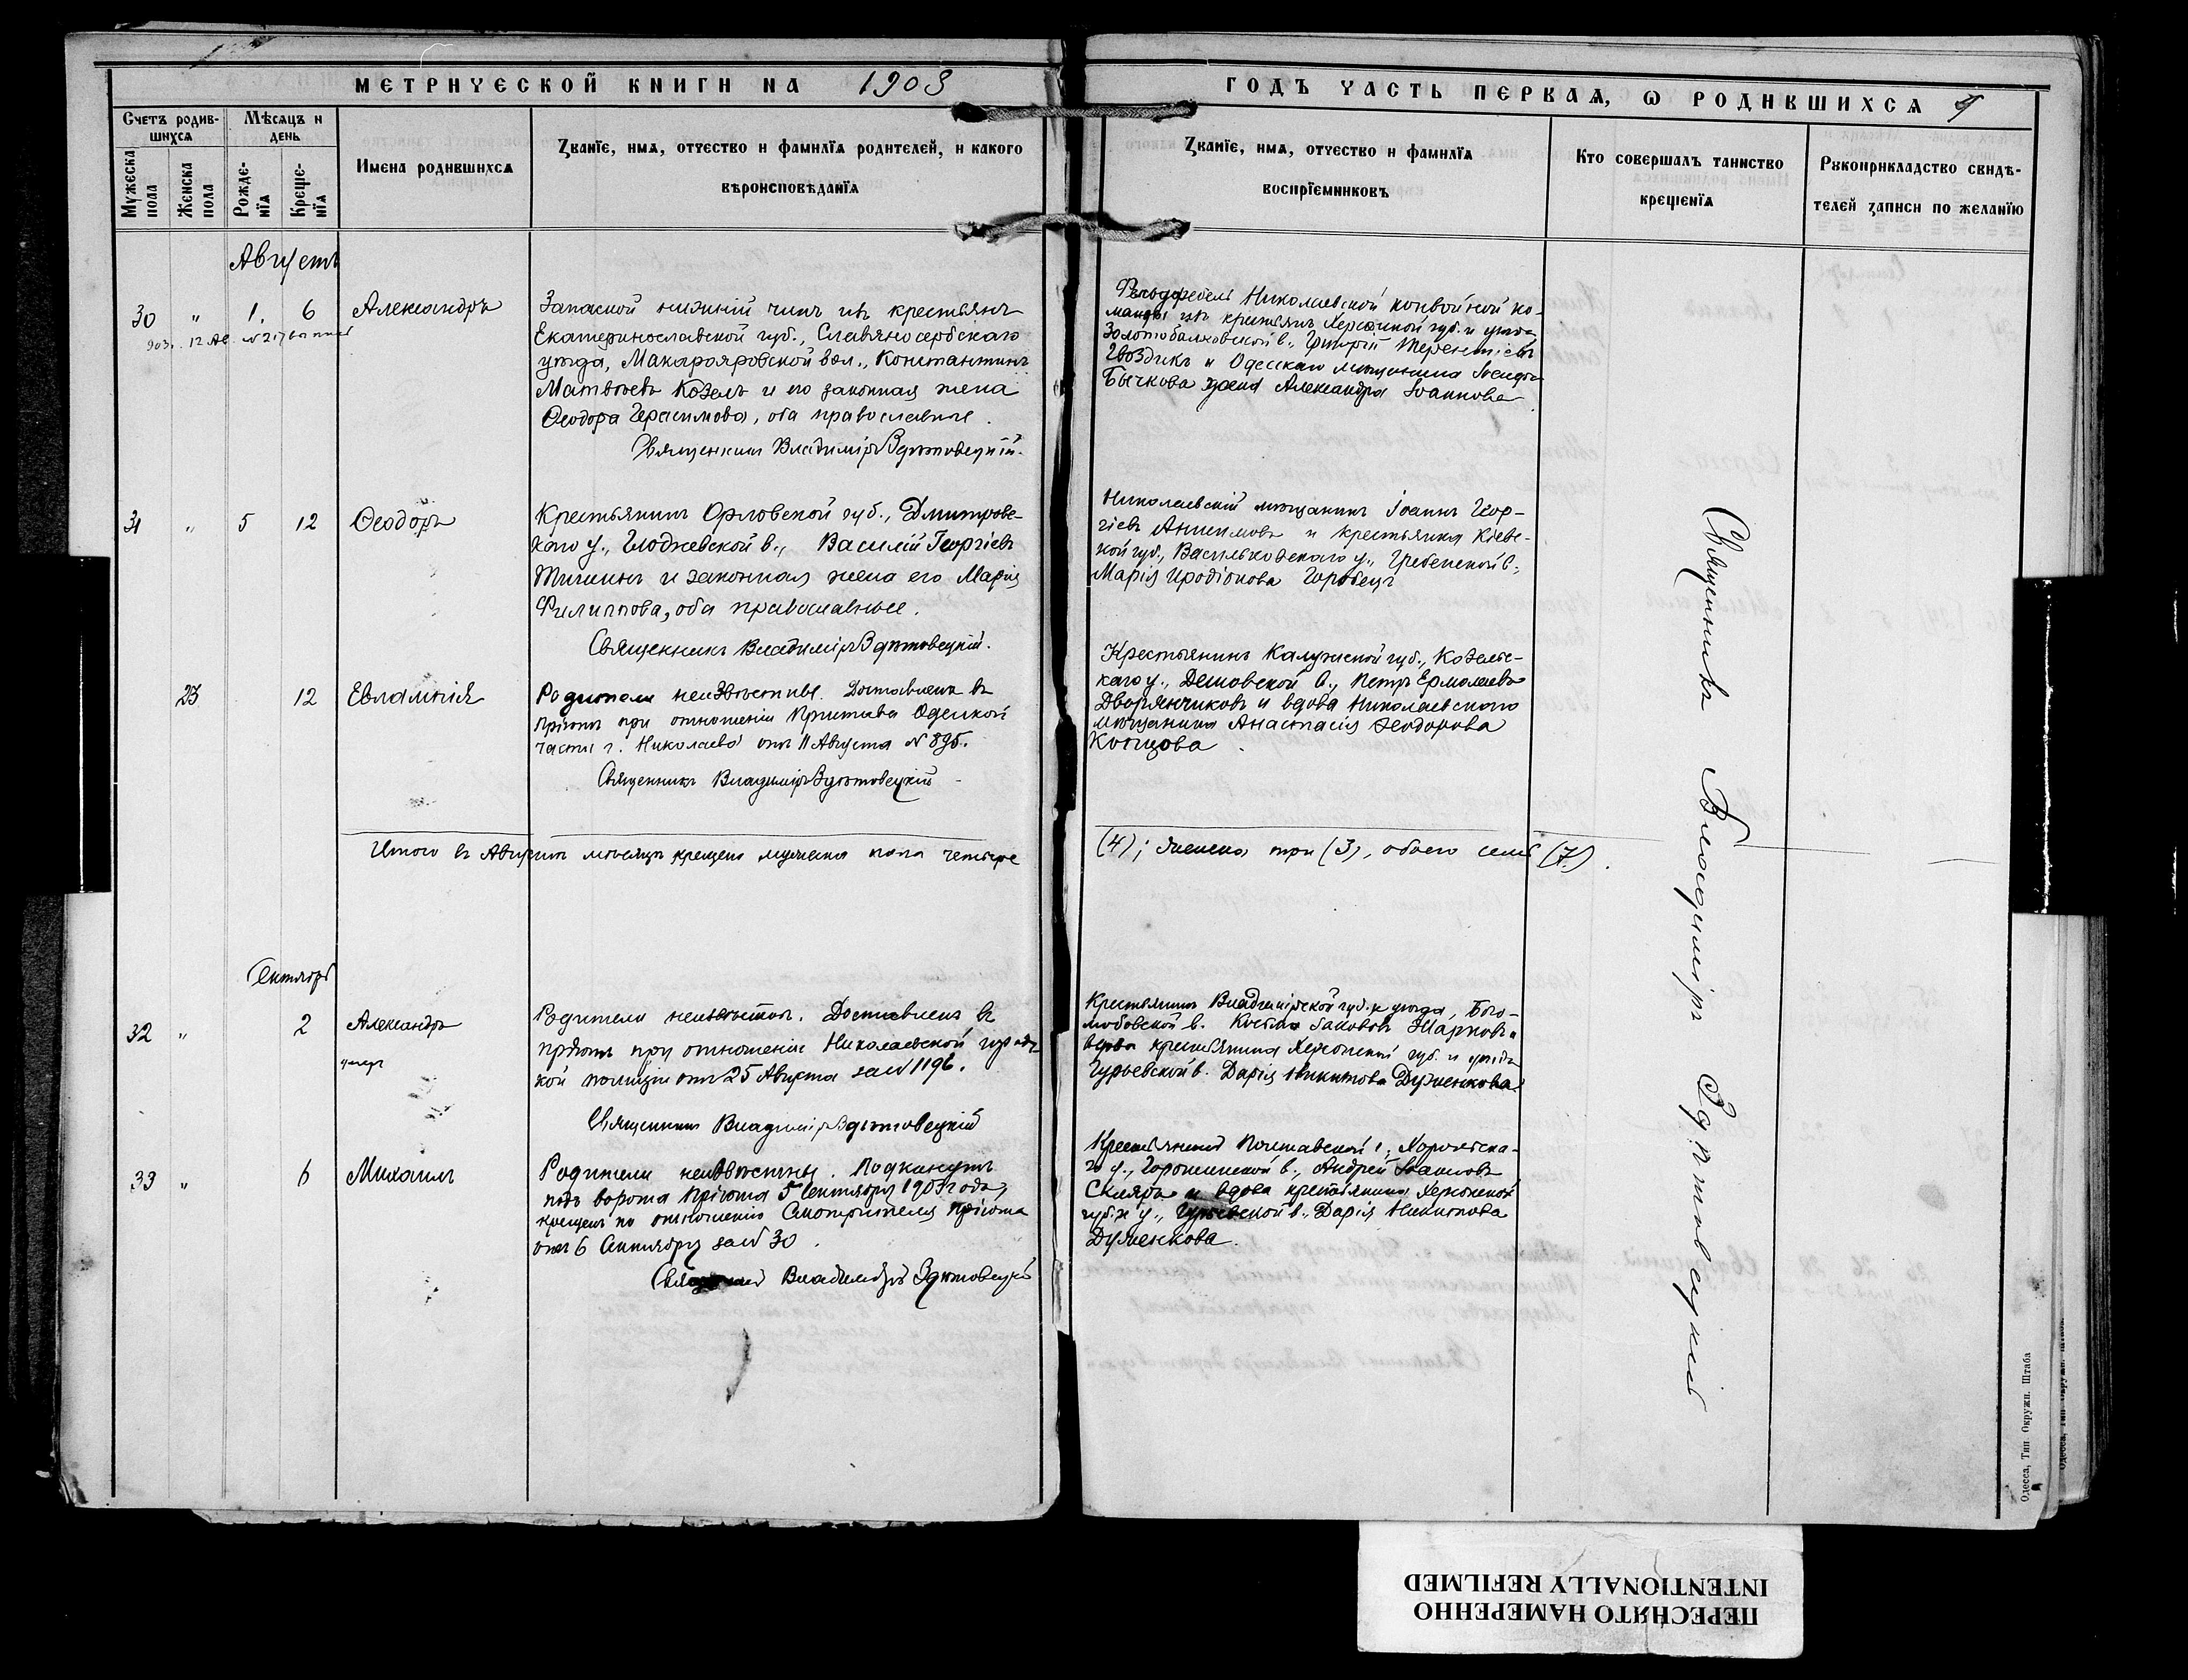 МЕТРИЧЕСКОЙ КНИГИ НА 1903
ГОДЪ ЧАСТЬ ПЕРВАЯ, Ѡ РОДИВШИХСЯ
Счетъ родившихся
Мужеска пола
Женска пола
Мѣсяцъ и день
Рожденїя
Крещенїя
Имена родившихся
Званїе, имя, отчество и фамилїя родителей, и какого
вѣроисповѣданїя
Званїе, имя, отчество и фамилїя
воспрїемниковъ
Кто совершалъ таинство
крещенїя
Рукоприкладство свидѣ-
телей записи по желанїю
Августъ
30 " 1. 6 Александръ
Запасной нижній чинъ изъ крестьянъ
Екатеринославской губ., Славяносербскаго
уѣзда, Макарояровской вол., Константинъ
Матвѣевъ Козелъ и его законная жена
Ѳеодора Герасимова, оба православные.
Священникъ Владиміръ Здѣтовецкій.
Фельдфебель Николаевской конвойной ко-
манды изъ крестьянъ Херсонской губ. и уѣзда
Золотобалковской в., Григорій Терентіевъ
Гвоздикъ и Одесскаго мѣщанина
Бычкова жена Александра Іоаннова
31 " 5 12 Ѳеодоръ
Крестьянинъ Орловской губ., Дмитровс-
каго у., в., Василій Георгіевъ
и законная жена его Марія
Филиппова, оба православные.
Священникъ Владиміръ Здѣтовецкій.
Николаевскій мѣщанинъ Іоаннъ Геор-
гіевъ Анисимовъ и крестьянка Кіевс-
кой губ., Васильковскаго у., Гребенской в.,
Марія Иродіонова Горобецъ
23 12 Евлампія
Родители неизвѣстны. Доставлена въ
пріютъ при отношеніи Пристава Одесской
части г. Николаева отъ 11 Августа № 895.
Священникъ Владиміръ Здѣтовецкій
Крестьянинъ Калужской губ., Козельс-
каго у., Дешовской в., Петръ Ермолаевъ
Дворянчиковъ и вдова Николаевскаго
мѣщанина Анастасія Ѳеодорова
Итого въ Августѣ мѣсяцѣ крещено мужеска пола четыре
(4); женска три (3), обоего семь (7).
Сентябрь
32 " 2 Александръ
умеръ
Родители неизвѣстны. Доставленъ въ
пріютъ при отношеніи Николаевской городс-
кой полиціи отъ 25 Августа за № 1196.
Священникъ Владиміръ Здѣтовецкій
Крестьянинъ Владимірской губ. и уѣзда, Бого-
любовской в. Косьма Іаковъ Жарковъ и
вдова крестьянина Херсонской губ. и уѣзда
Гурьевской в. Дарія Никитова Думенкова
33 " 6 Михаилъ
Родители неизвѣстны. Подкинутъ
подъ ворота пріюта 5 Сентября 1903 года,
крещенъ по отношенію Смотрителя пріюта
отъ 6 Сентября за № 30.
Священникъ Владиміръ Здѣтовецкій
Крестьянинъ Полтавской г., Хорольска-
го у., Горошинской в., Андрей Іоанновъ
Скляръ и вдова крестьянина Херсонской
губ. и у., Гурьевской в., Дарія Никитова
Думенкова.
Священникъ Владиміръ Здѣтовецкій
Одесса, Тип Окружн. Штаба
ПЕРЕСНЯТО НАМЕРЕННО
INTENTIONALLY REFILMED